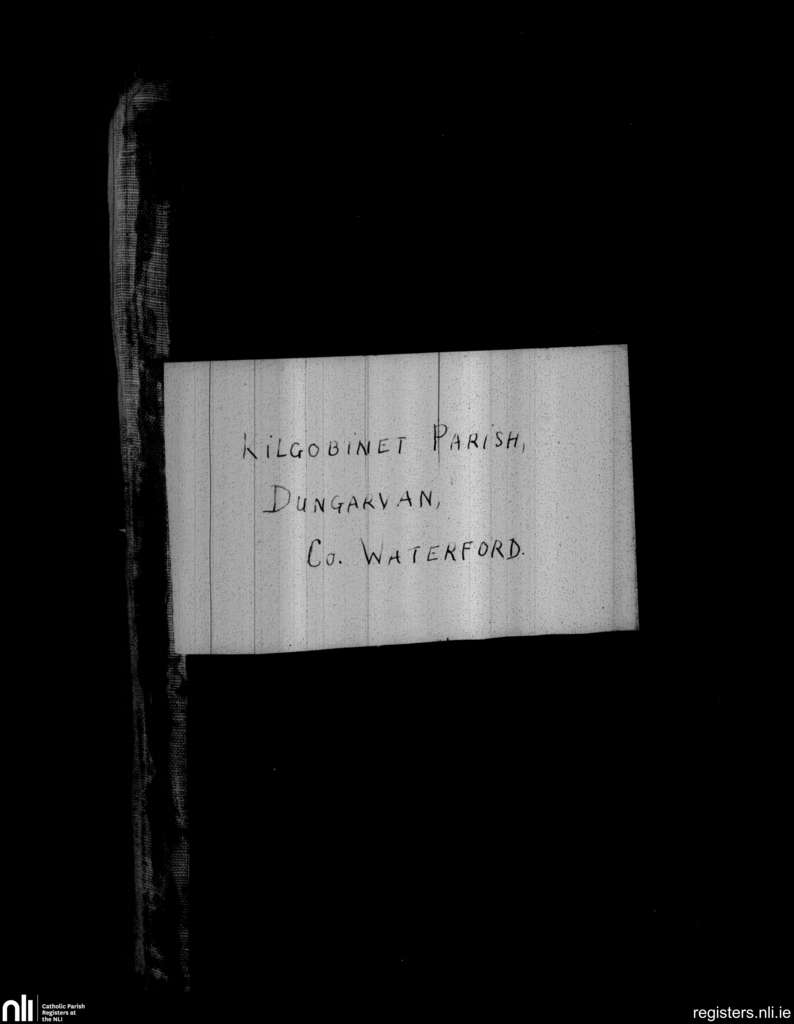 KILGOBINET PARISH,
DUNGARVAN,
CO. WATERFORD.
nli
Catholic Parish
Registers at
the NLI
registers.nli.ie